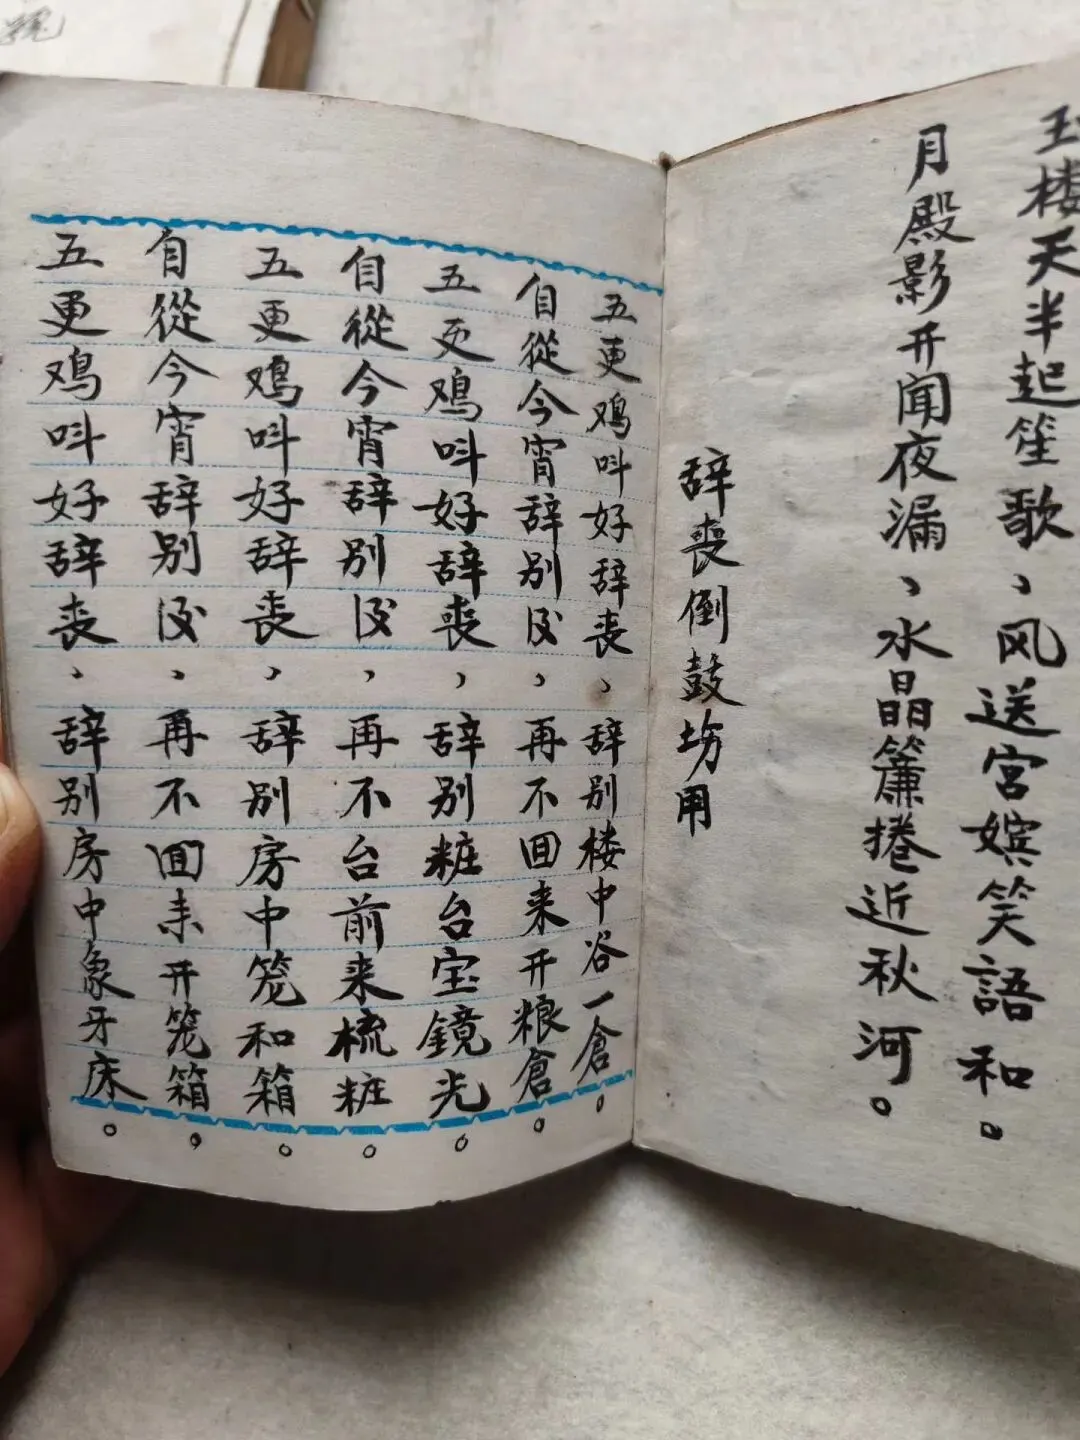 玉楼天半起笙歌、风送宫嫔笑語和。
月殿影开闻夜漏、水晶簾捲近秋河。
辞丧倒鼓坊用
五更鸡叫好辞丧、辞别楼中谷一倉。
自從今宵辞别后、再不回来开粮倉。
五更鸡叫好辞丧、辞别粧台宝鏡光。
自從今宵辞别后、再不台前来梳粧。
五更鸡叫好辞丧、辞别房中笼和箱。
自從今宵辞别后、再不回来开笼箱。
五更鸡叫好辞丧、辞别房中象牙床。